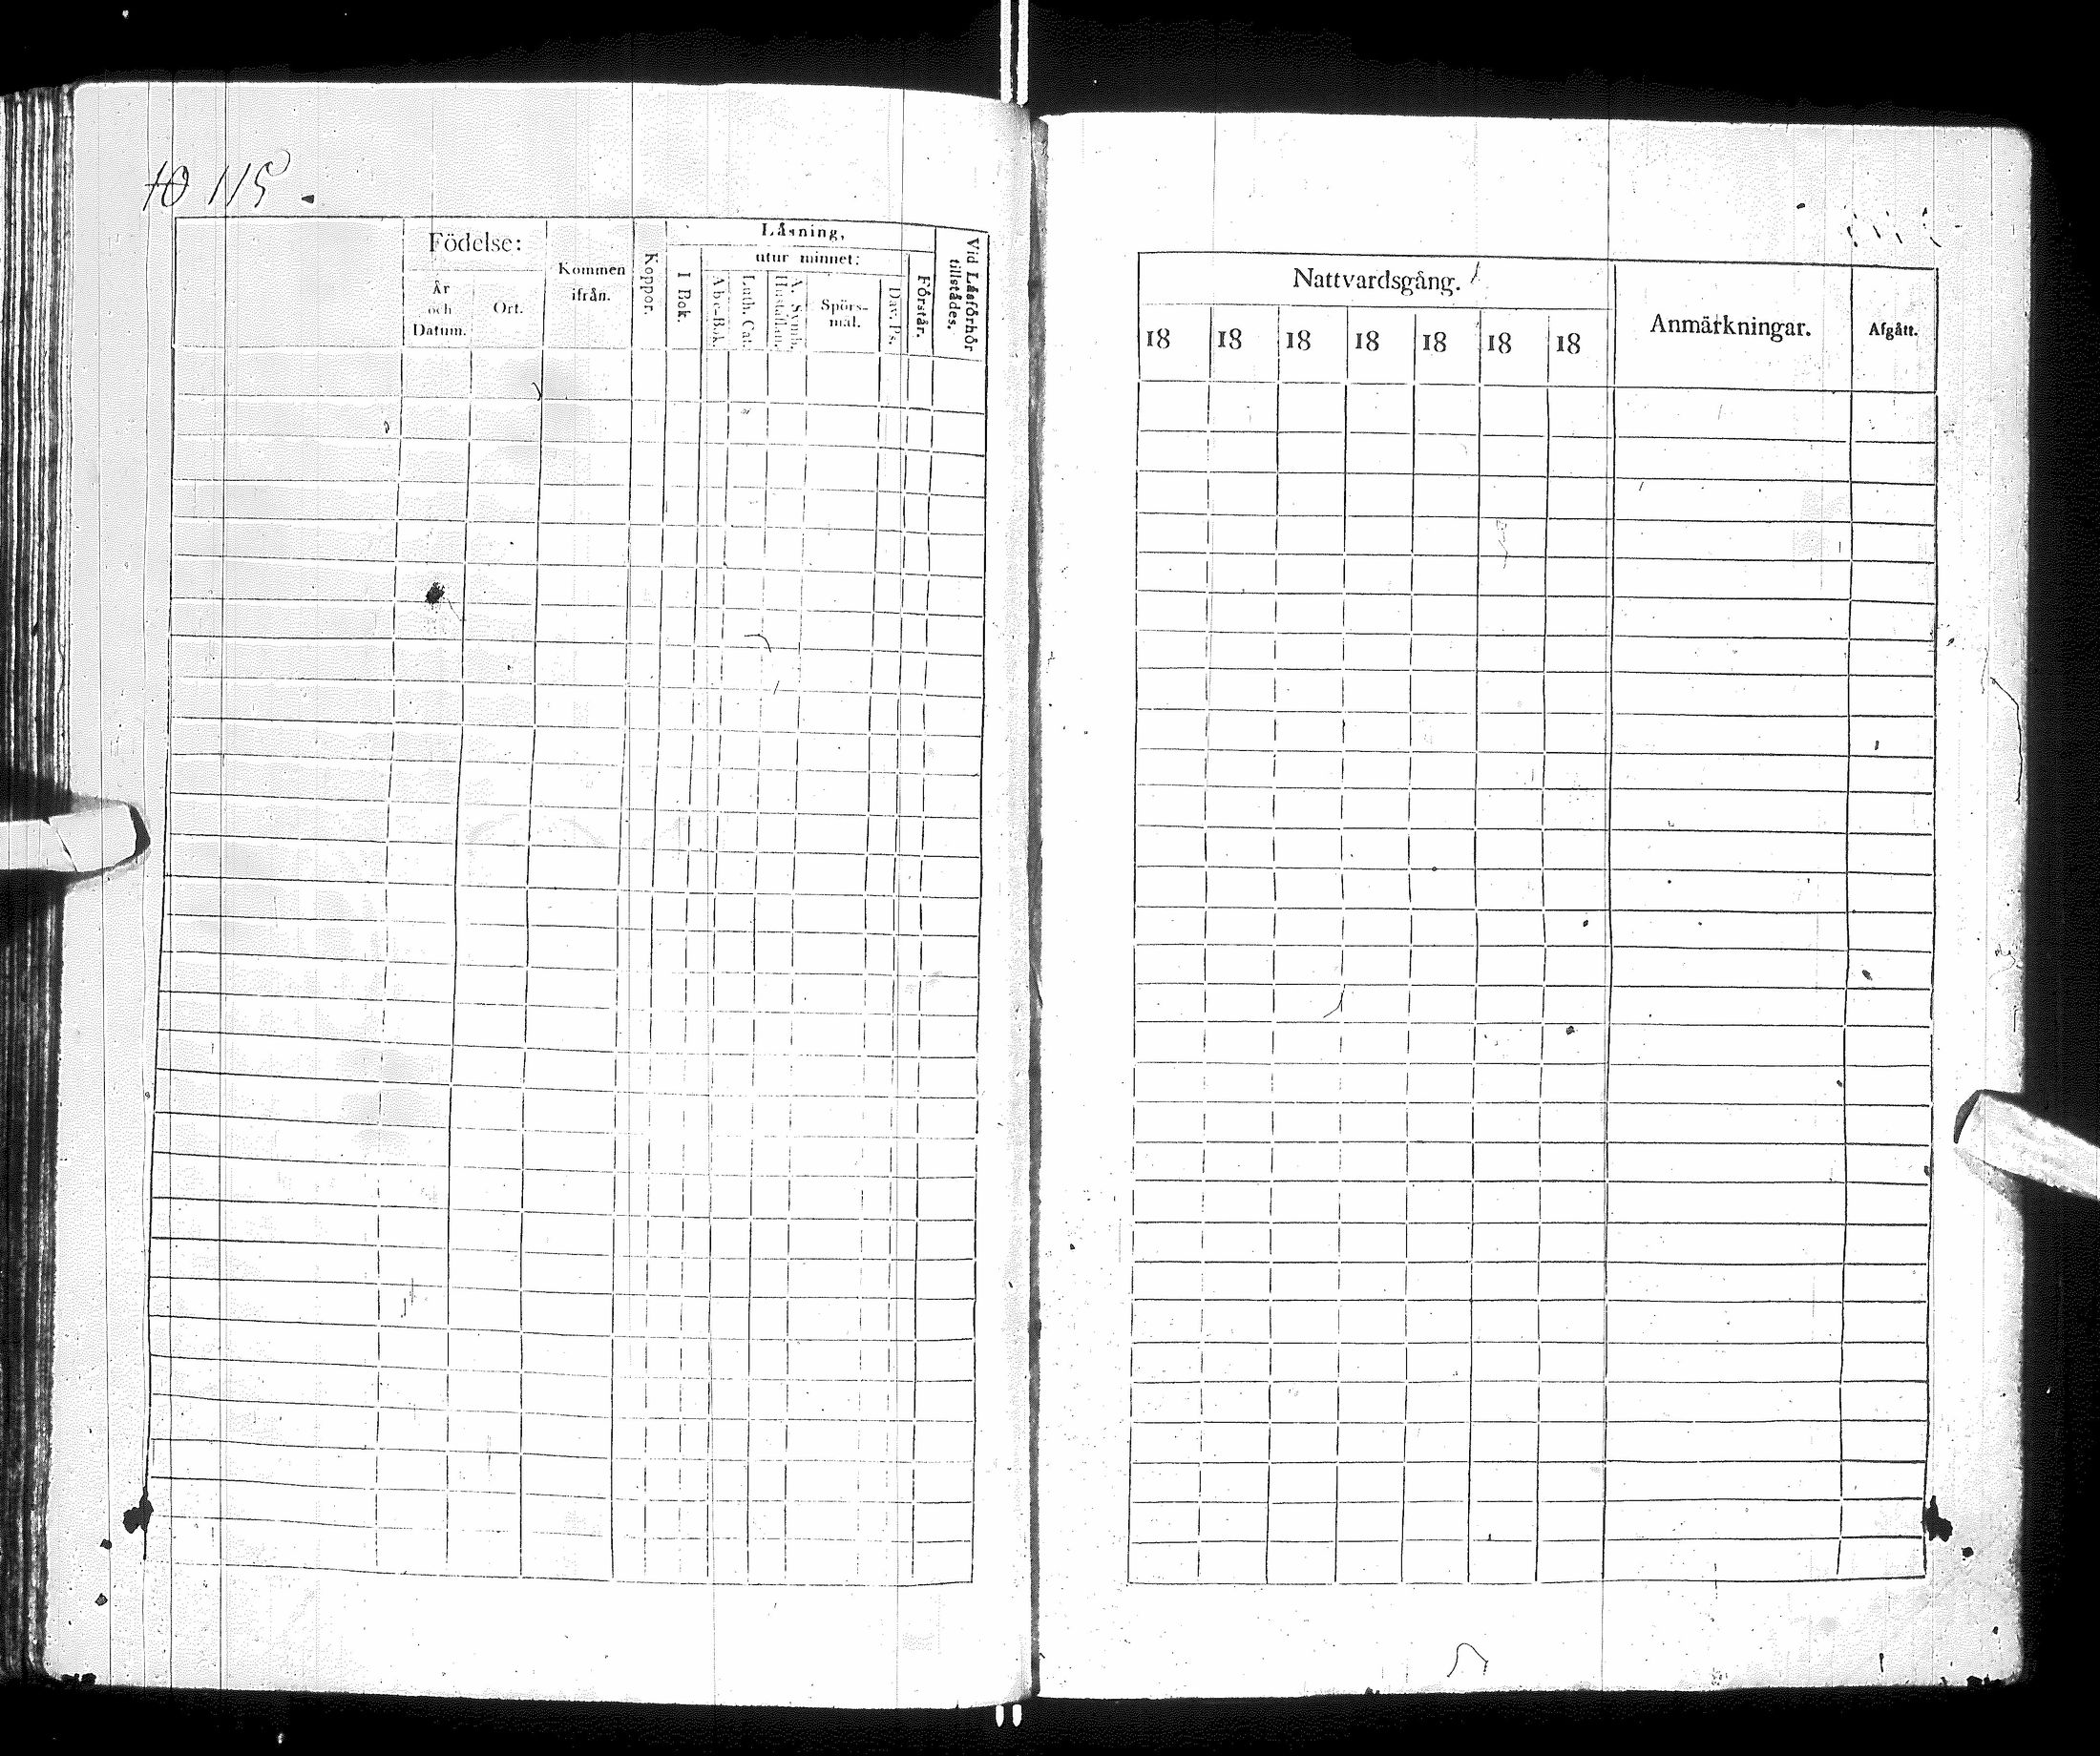 115.
Födelse:
År
och
Datum.
Ort.
Kommen
ifrån.
Koppor.
Läsning,
I Bok.
utur minnet:
Abc-Bok.
Luth. Cat.
A. Symb.
Hustaflan.
Spörs-
mål.
Dav. Ps.
Förstår.
Vid Läsförhör
tillstådes.
Nattvardsgång.
18 18 18 18 18 18 18
Anmärkningar.
Afgått.